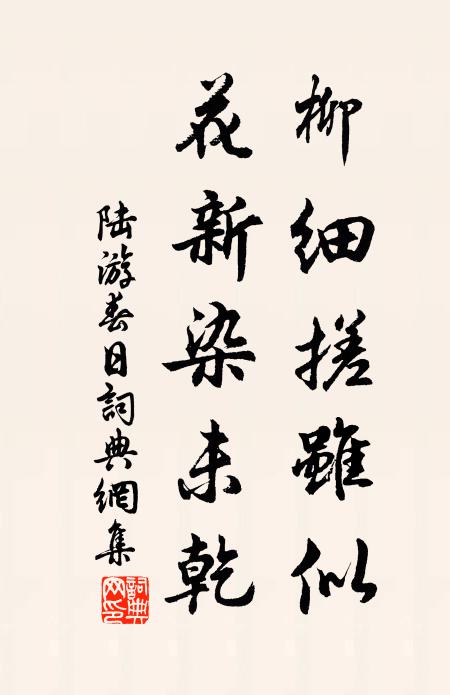 柳細搓雖似
花新染未乾
陸游春日詞典網集
詞典
网印